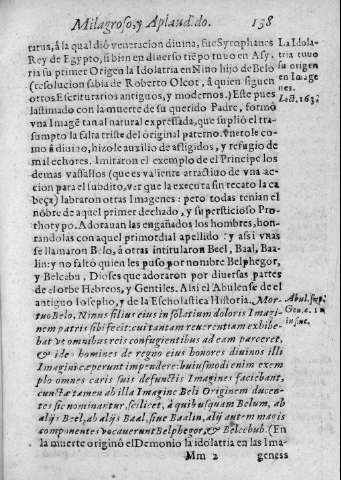 Milagroso, y Aplaudido. 138
tatus, à la qual dió veneracion divina, fue Syrophanes
Rey de Egypto, si bien en diverso tiẽpo tuvo en Asy-
ria su primer Origen la Idolatria en Nino hijo de Belo
(resolucion sabia de Roberto Olcot, à quien siguen
otros Escriturarios antiguos, y modernos.) Este pues
lastimado con la muerte de su querido Padre, formò
vna Imagẽ tan al natural expressada, que suplió el tra-
sumpto la falta triste del original paterno. Venerole co-
mo à divino, hizole auxilio de afligidos, y refugio de
malechores. Imitaron el exemplo de el Principe los
demas vassallos (que es valiente atractivo de vna ac-
cion para el subdito, ver que la executa sin recato la ca
beça) labraron otras Imagenes: pero todas tenian el
nõbre de aquel primer dechado, y supersticioso Pro-
thotypo. Adorauan las engañados los hombres, hon-
randolas con aquel primordial apellido: y assi vnas
se llamaron Belo, à otras intitularon Beel, Baal, Baa-
lin: y no faltó quien les puso por nombre Belphegor,
y Belcebu, Dioses que adoraron por diversas partes
de el orbe Hebreos, y Gentiles. Alsi el Abulense de el
antiguo Iosepho, y de la Escholastica Historia. Mor-
tuo Belo, Ninus filius eius in solatium doloris Imagi-
nem patris sibi fecit: cui tantam reuerentiam exhibe-
bat ve omnibus reis confugientibus ad eam parceret,
& ideo homines de regno eius honores diuinos illi
Imagini cœperunt impendere: huiusmodi enim exem
plo omnes caris suis defunctis Imagines faciebant,
cunctæ tamen ab illa Imagine Beli Originem ducen-
tes sic nominantur, scilicet, à quibusquam Belum, ab
alijs Beel, ab alijs Baal, siue Baalin, alij autem magis
componentes vocauerunt Belphegor, & Belcebub. (En
la muerte originó el Demonio la idolatria en las Ima-
Mm 2 geness
La Idola-
tria tuvo
su origen
en Image
nes.
Lect. 163.
Abul. sup.
Gen.